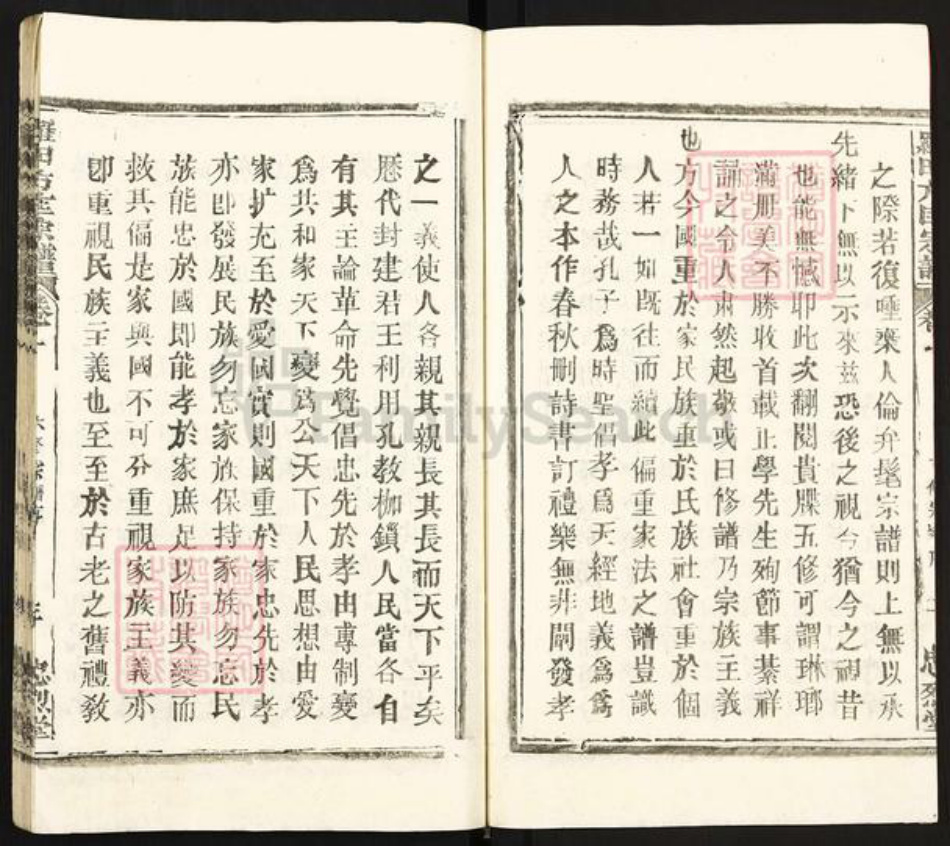 之際若復唾棄人倫弁髦宗譜則上無以承
先緒下無以示來茲恐後之視今猶今之視昔
也能無憾耶此次翻閱貴牒五修可謂琳瑯
滿冊美不勝收首載止學先生殉節事綦祥
誦之令人肅然起敬或曰修譜乃宗族主義
也方今國重於家民族重於氏族社會重於個
人若一如既往而續此偏重家法之譜豈識
時務哉孔子為時聖倡孝為天經地義為為
人之本作春秋刪詩書訂禮樂無非闡發孝
之一義使人各親其親長其長而天下平矣
歷代封建君王利用孔教枷鎖人民當各自
有其主論革命先覺倡忠先於孝由專制變
為共和家天下變為公天下人民思想由愛
家扩充至於愛國實則國重於家忠先於孝
亦即發展民族勿忘家族保持家族勿忘民
族能忠於國即能孝於家庶足以防其變而
救其偏是家與國不可分重視家族主義亦
即重視民族主義也至至於古老之舊禮敎
羅田方氏宗譜
卷一
忠烈堂
羅田方氏宗譜
卷一
忠烈堂
FamilySearch